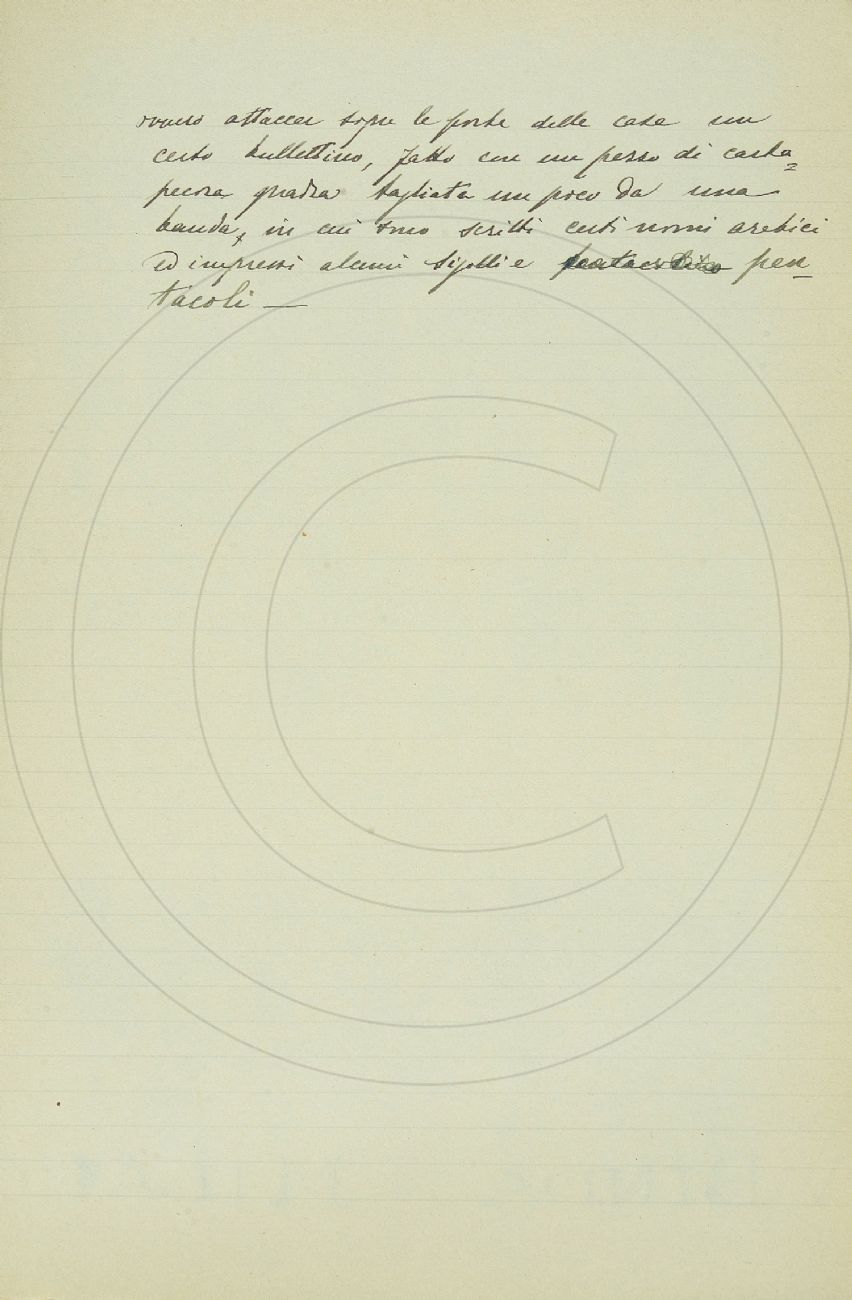 ovvero attaccar sopra le porte delle case un
certo bullettino, fatto con un pezzo di carta=
pecora quadra tagliata un poco da una
banda, in cui sono scritti certi nomi arabici
ed impressi alcuni sigilli e pen=
tacoli —